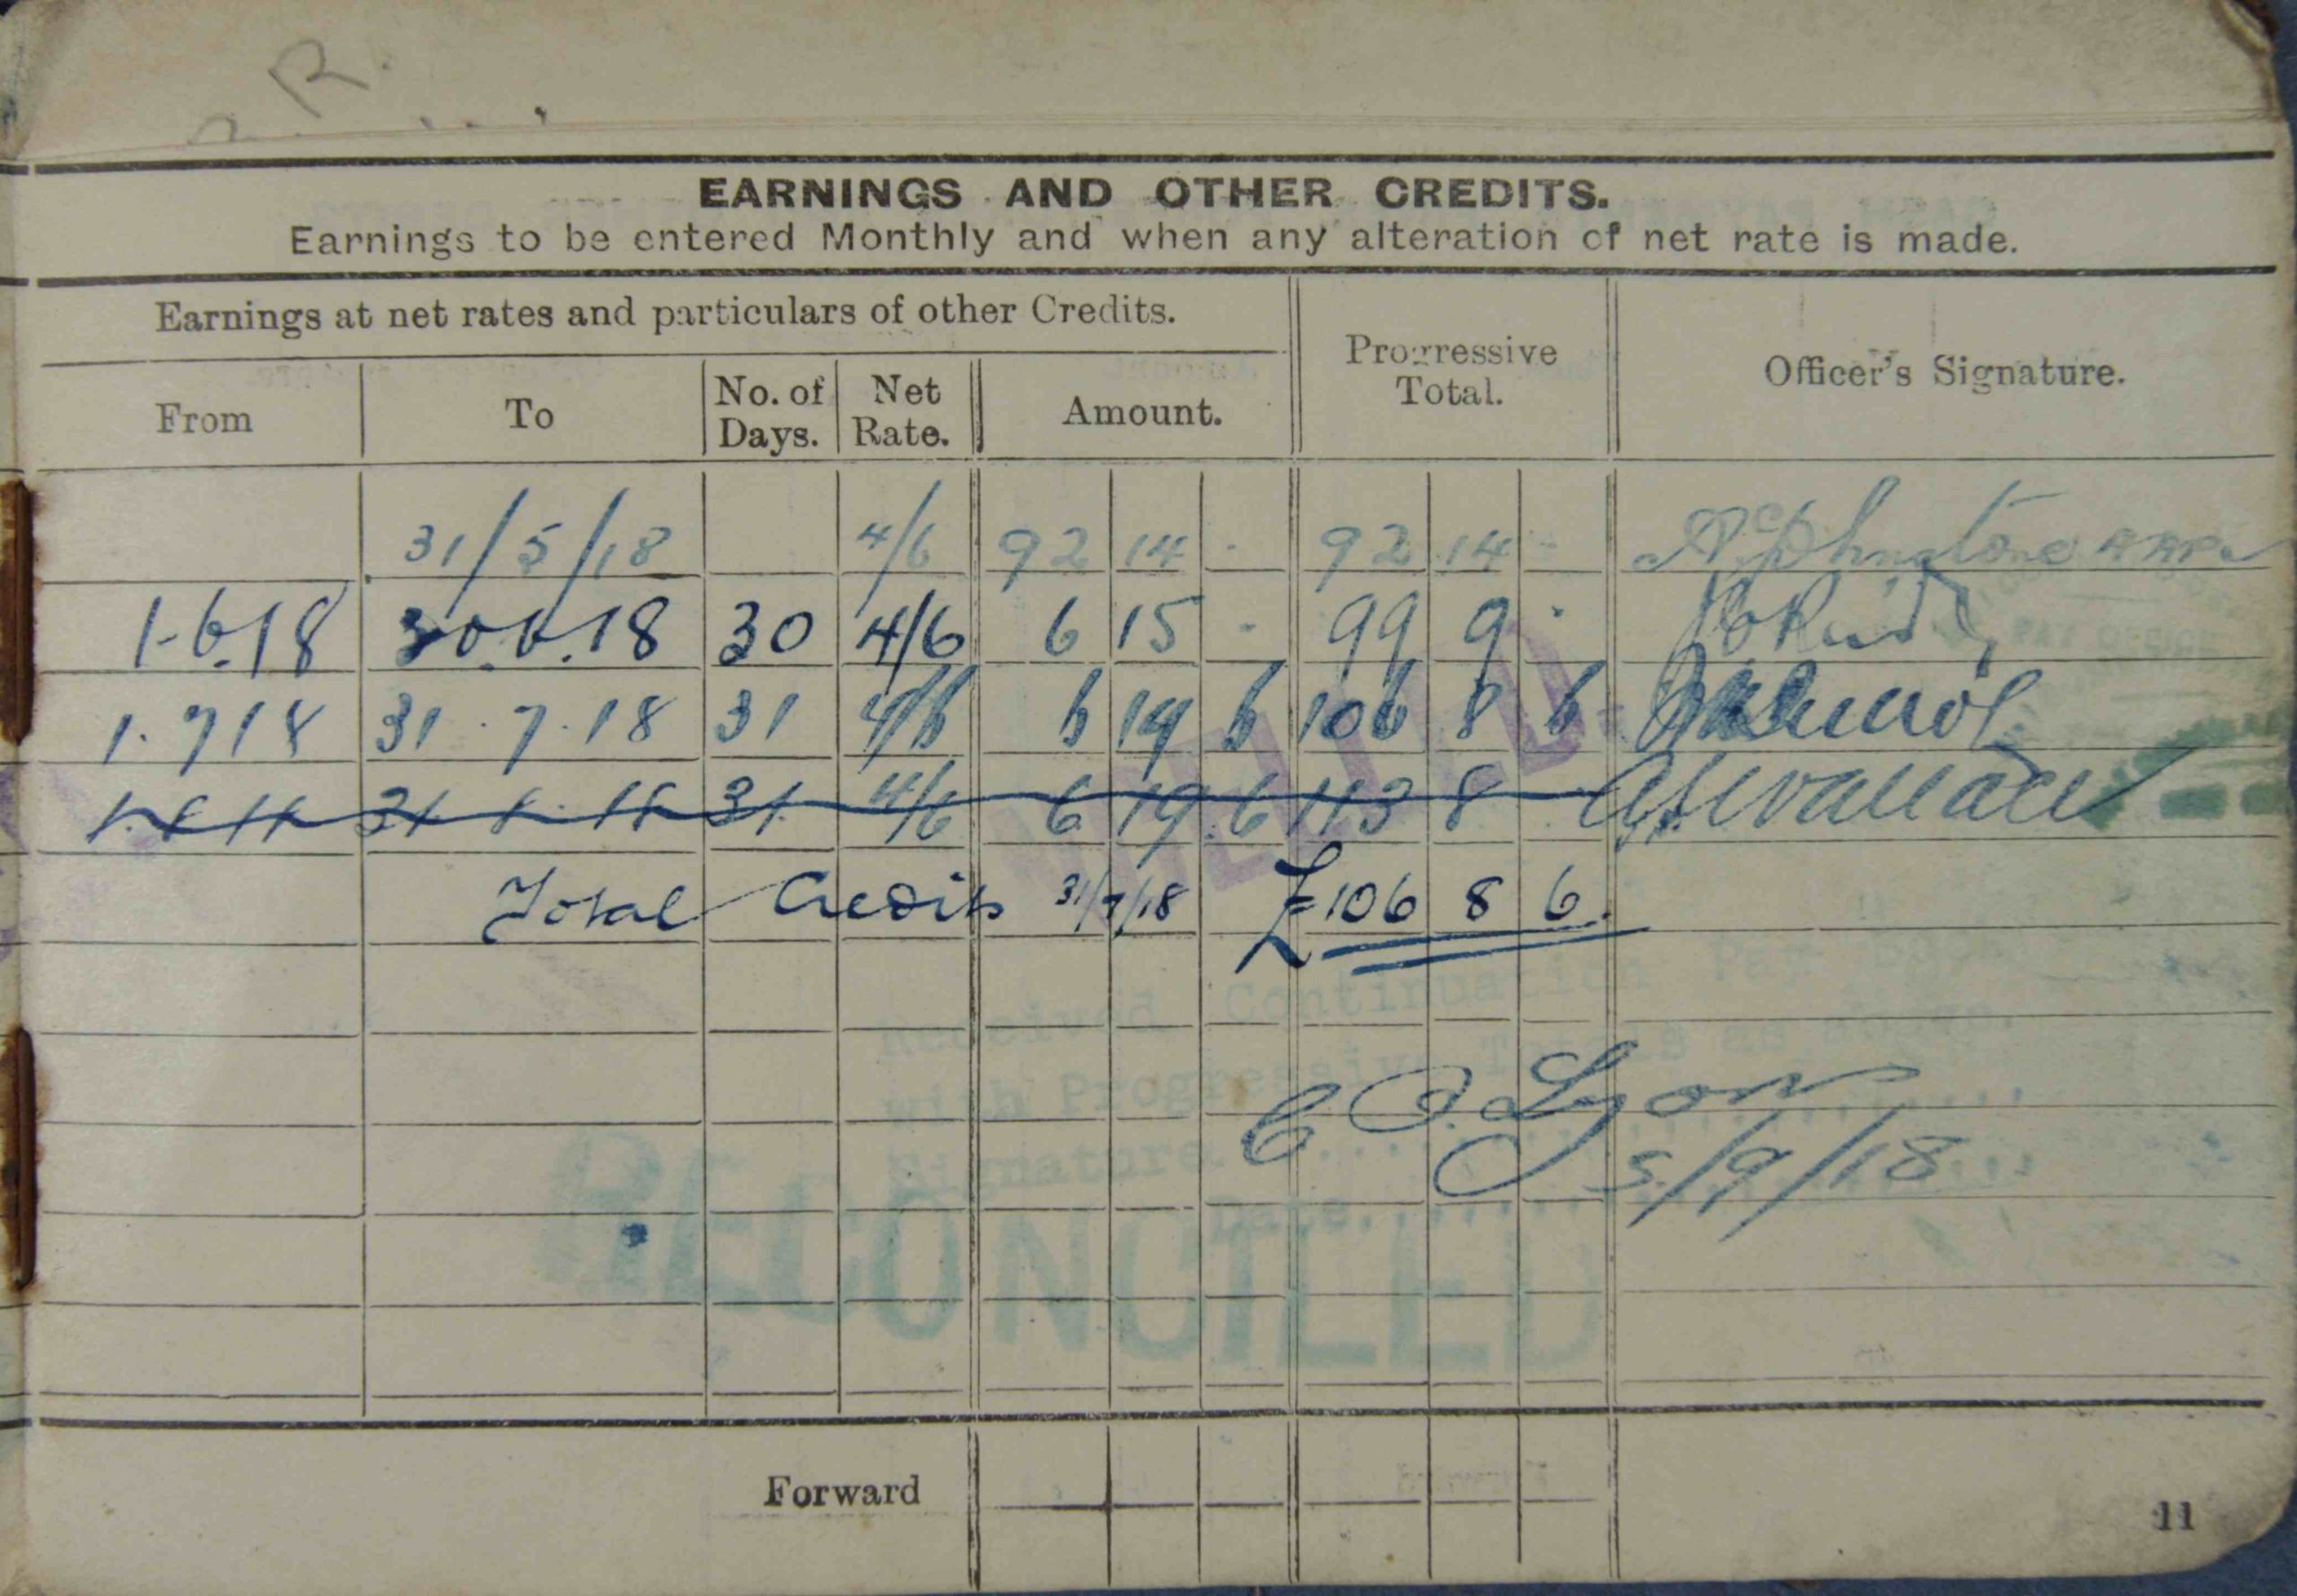 R.
EARNINGS AND OTHER CREDITS.
Earnings to be entered Monthly and when any alteration of net rate is made.
Earnings at net rates and particulars of other Credits.
Progressive Total.
Officer's Signature.
From To No. of Days. Net Rate. Amount.
31/5/18 4/6 92 14 - 92 14 -
1-6.18 30.6.18 30 4/6 6 15 - 99 9 -
1.7 18 31.7.18 31 4/6 6 19 6 106 8 6
1.8.18 31.8.18 31 4/6 6 19.6 113 8 Wallace
Total Credits 31/7/18 £106 8 6.
CANCELLED.
Received Continuation Pay Book
with Progressive Totals as above.
C O. Lyon
Signature
5/9/18
Date
RECONCILED
Forward
11